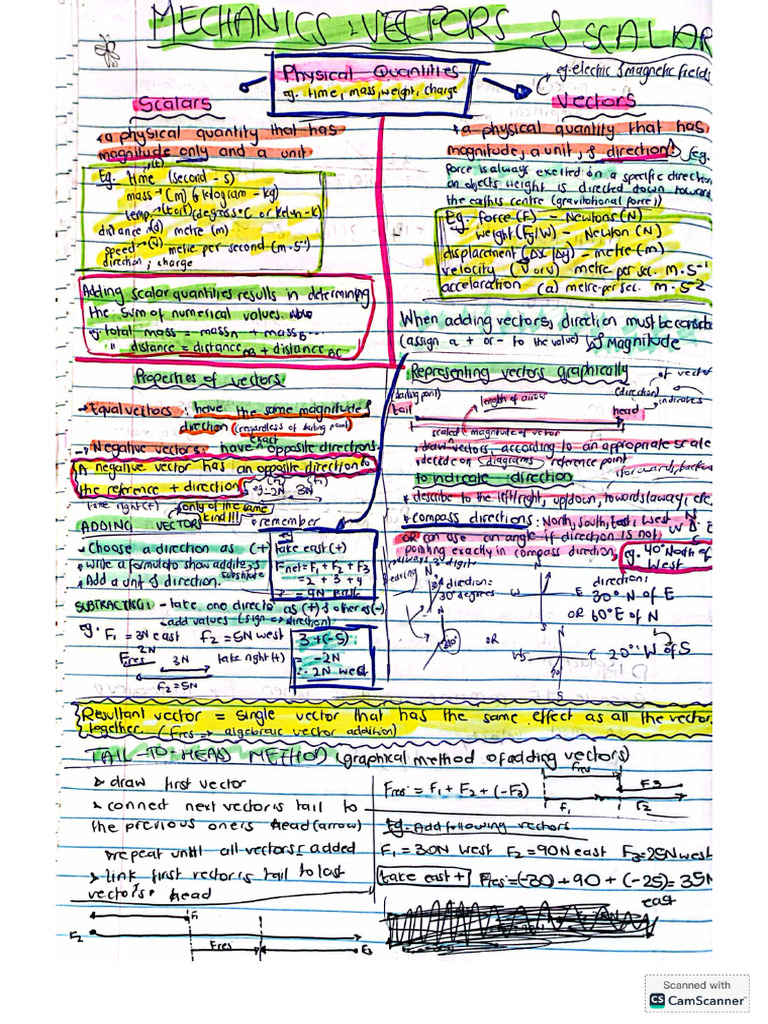 MECHANICS: VECTORS & SCALAR
Physical Quantities
eg. time, mass, weight, charge
eg. electric & magnetic fields
Scalars
• a physical quantity that has
magnitude only and a unit
Eg. time (t) (second - s)
mass → (m) (kilogram - kg)
temp. (degress °C or kelvin - K)
distance → (d) metre (m)
speed → (v) metre per second (m·s⁻¹)
direction, charge
Adding scalar quantities results in determining
the sum of numerical values.
eg. total mass = mass A + mass B ...
" distance = distance AB + distance BC
Vectors
• a physical quantity that has
magnitude, a unit, & direction! (eg.
force is always exerted on a specific direction
an objects weight is directed down toward
the earths centre (gravitational force))
Eg. - Force (F) - Newtons (N)
weight (Fg/W) - Newton (N)
displacement (Δx/Δy) - metre (m)
velocity (V or v) metre per sec. m·s⁻¹
accelaration (a) metre per sec. m·s⁻²
When adding vectors, direction must be conside
(assign a + or - to the value) & Magnitude
Properties of vectors
→ Equal vectors: have the same magnitude &
direction (regardless of starting point)
→ Negative vectors: have exact opposite directions
A negative vector has an opposite direction to
the reference + direction. eg. -2N, 3N
take right (+) only of the same
kind!!! • remember
ADDING VECTORS
• Choose a direction as (+)
• Write a formula to show addition &
substitute
• Add a unit & direction.
take east (+)
Fnet = F₁ + F₂ + F₃
= 2 + 3 + 4
= 9N east
SUBTRACTING: - take one directo as (+) & other as (-)
- add values (sign => direction)
eg. F₁ = 3N east F₂ = 5N west
2N
Fres 3N take right (+)
F₂ = 5N
3 + (-5)
= -2N
∴ 2N west
Representing vectors graphically
(starting point) length of arrow (direction) indicates of vector
tail head
scaled magnitude of vector
• draw vectors, according to an appropriate scale
• decide on diagrams reference point
to indicate direction (forward, backw
• describe to the left/right, up/down, towards/away, etc.
• compass directions: North, South, East, West N
W E
S
OR can use an angle if direction is not
pointing exactly in compass direction, eg. 40° North of
West
bearing 3 digits
direction:
30° degrees
OR
N
W E
direction:
30° N of E
OR 60° E of N
N
W E
S
20° W of S
Resultant vector = single vector that has the same effect as all the vector
together. (Fres → algebraic vector addition)
TAIL-TO-HEAD METHOD (graphical method of adding vectors)
• draw first vector
• connect next vector is tail to
the previous one is head (arrow)
• repeat until all vectors added
• link first vector is tail to last
vector's head
Fres = F₁ + F₂ + (-F₃)
Fres
F₃
F₁ F₂
Eg. Add following vectors
F₁ = 30N west F₂ = 90N east F₃ = 25N west
take east + Fres = (-30) + 90 + (-25) = 35N
east
F₁
F₂
Fres F₃
Scanned with
CS CamScanner